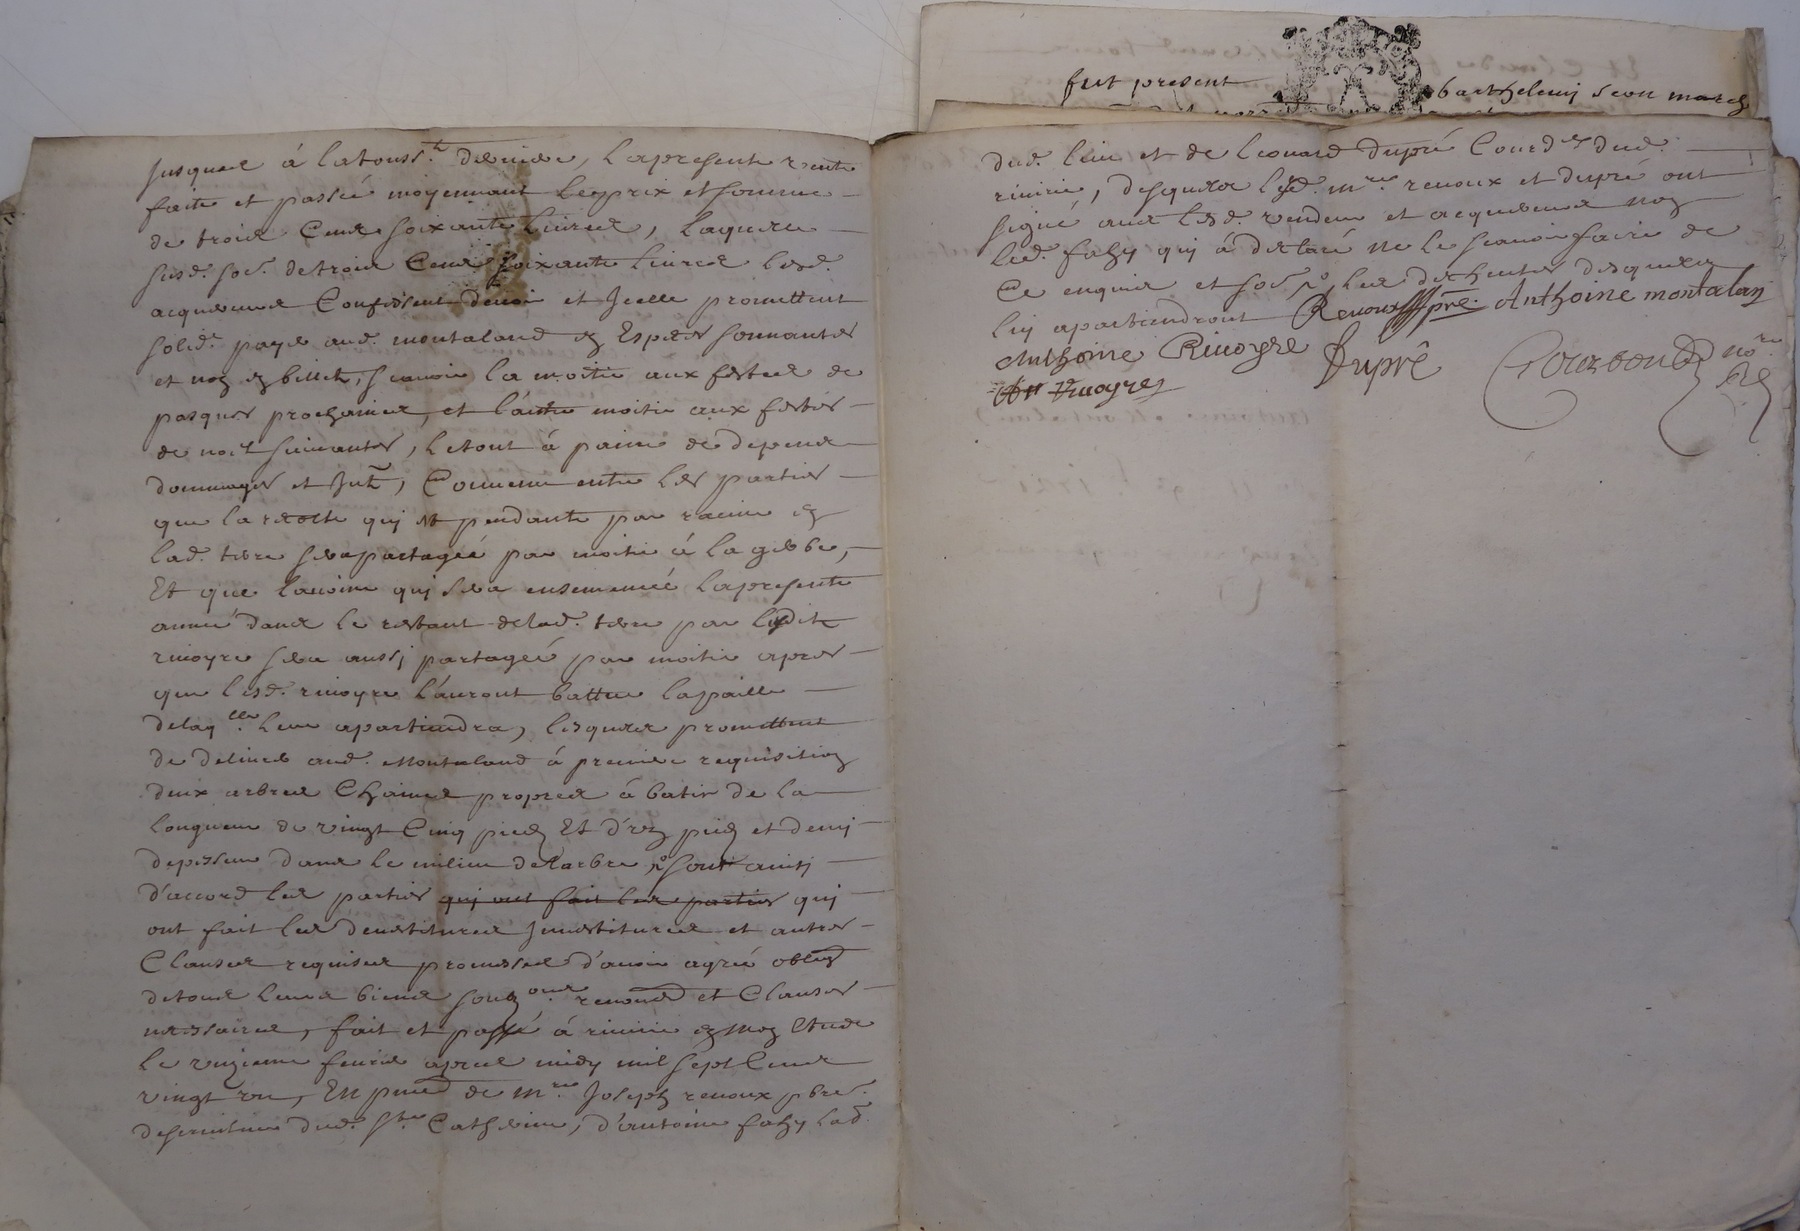 fut present barthelemy seon march
Jusques á latouss.t derniere, lapresent vente
faite et passée moyennant leprix et somme
de trois Cens soixante Livres, laquelle
susd. so.e detrois Cens soixante Livres lesd.
acquereurs Confessent devoir et Jcelle promettent
solid.t payer aud. montaland en Especes sonnantes
et non en billets, scavoir la moitié aux festes de
pasques prochaines, et l'autre moitié aux festes
de noel suivantes, letout á paine de depens
dommages et Jnts, Convenu entre les parties
que la recolte qui est pendante par racine en
lad. terre sera partagée par moitié á la gerbe,
Et que lavoine qui sera ensemencée lapresente
année dans le restant delad. terre par lesdits
rivoyre sera aussi partagée par moitié apres
que lesd. rivoyre l'auront battue lapaille
delaq.lle leur apartiendra, lesquels promettent
de delivrer aud. Montaland á premiere requisition
deux arbres Chaines propres á batir de la
longueur de vingt Cinq pieds Et d'un pied et demi
depesseur dans le milieu delarbre, sont ainsi
d'accord les parties qui ont fait les parties qui
ont fait les devestitures Jnvestitures et autres
Clauses requises promesses d'avoir agréé oblig.
detous leurs biens soum.ons renond. et Clauses
necessaires, fait et passé á rivirie en mon Etude
le onzieme fevrier apres midy mil sept Cens
vingt un, En pnce de m.re Joseph renoux pbre.
desserviteur dud. Ste Catherine, d'antoine fahy lad.
dud. lieu et de leonard dupré Courd.er dud.
rivirie, desquels lesd. m.re renoux et dupré ont
signé avec lesd. vendeur et acquereurs non
led. fahy qui á declaré ne le scavoir faire de
ce enquis et so.é les dixhuites desquels
luy apartiendront Renoux pre. Anthoine montalan
Anthoine Rivoyre Dupré Courbon no.re
An Rivoyre Rl